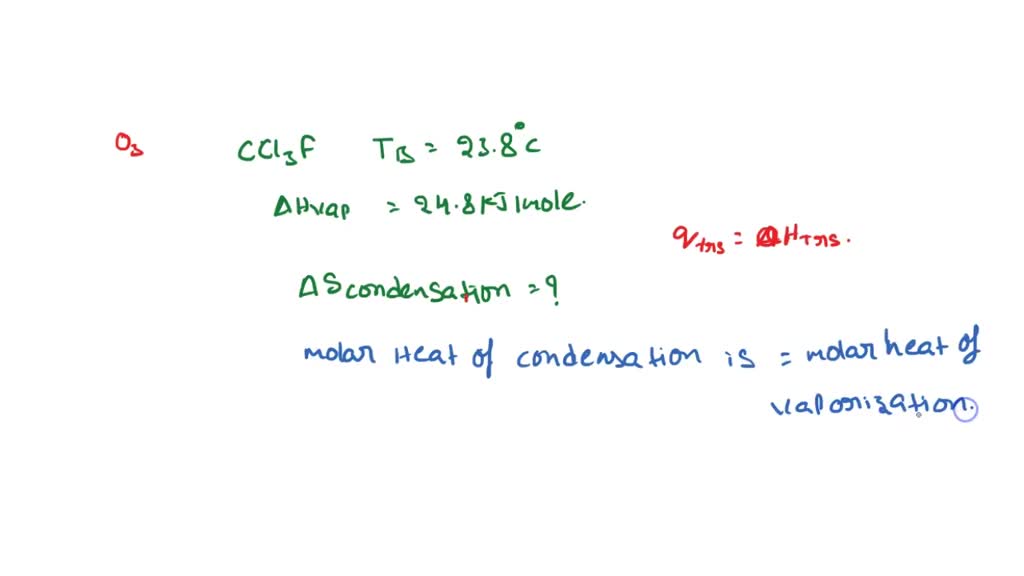 O₃ CCl₃F T_B = 23.8°C
ΔHvap = 24.8 KJ/mole.
q_trs = ΔH_Trs.
ΔS condensation = ?
molar Heat of condensation is = molar heat of
vaporization.